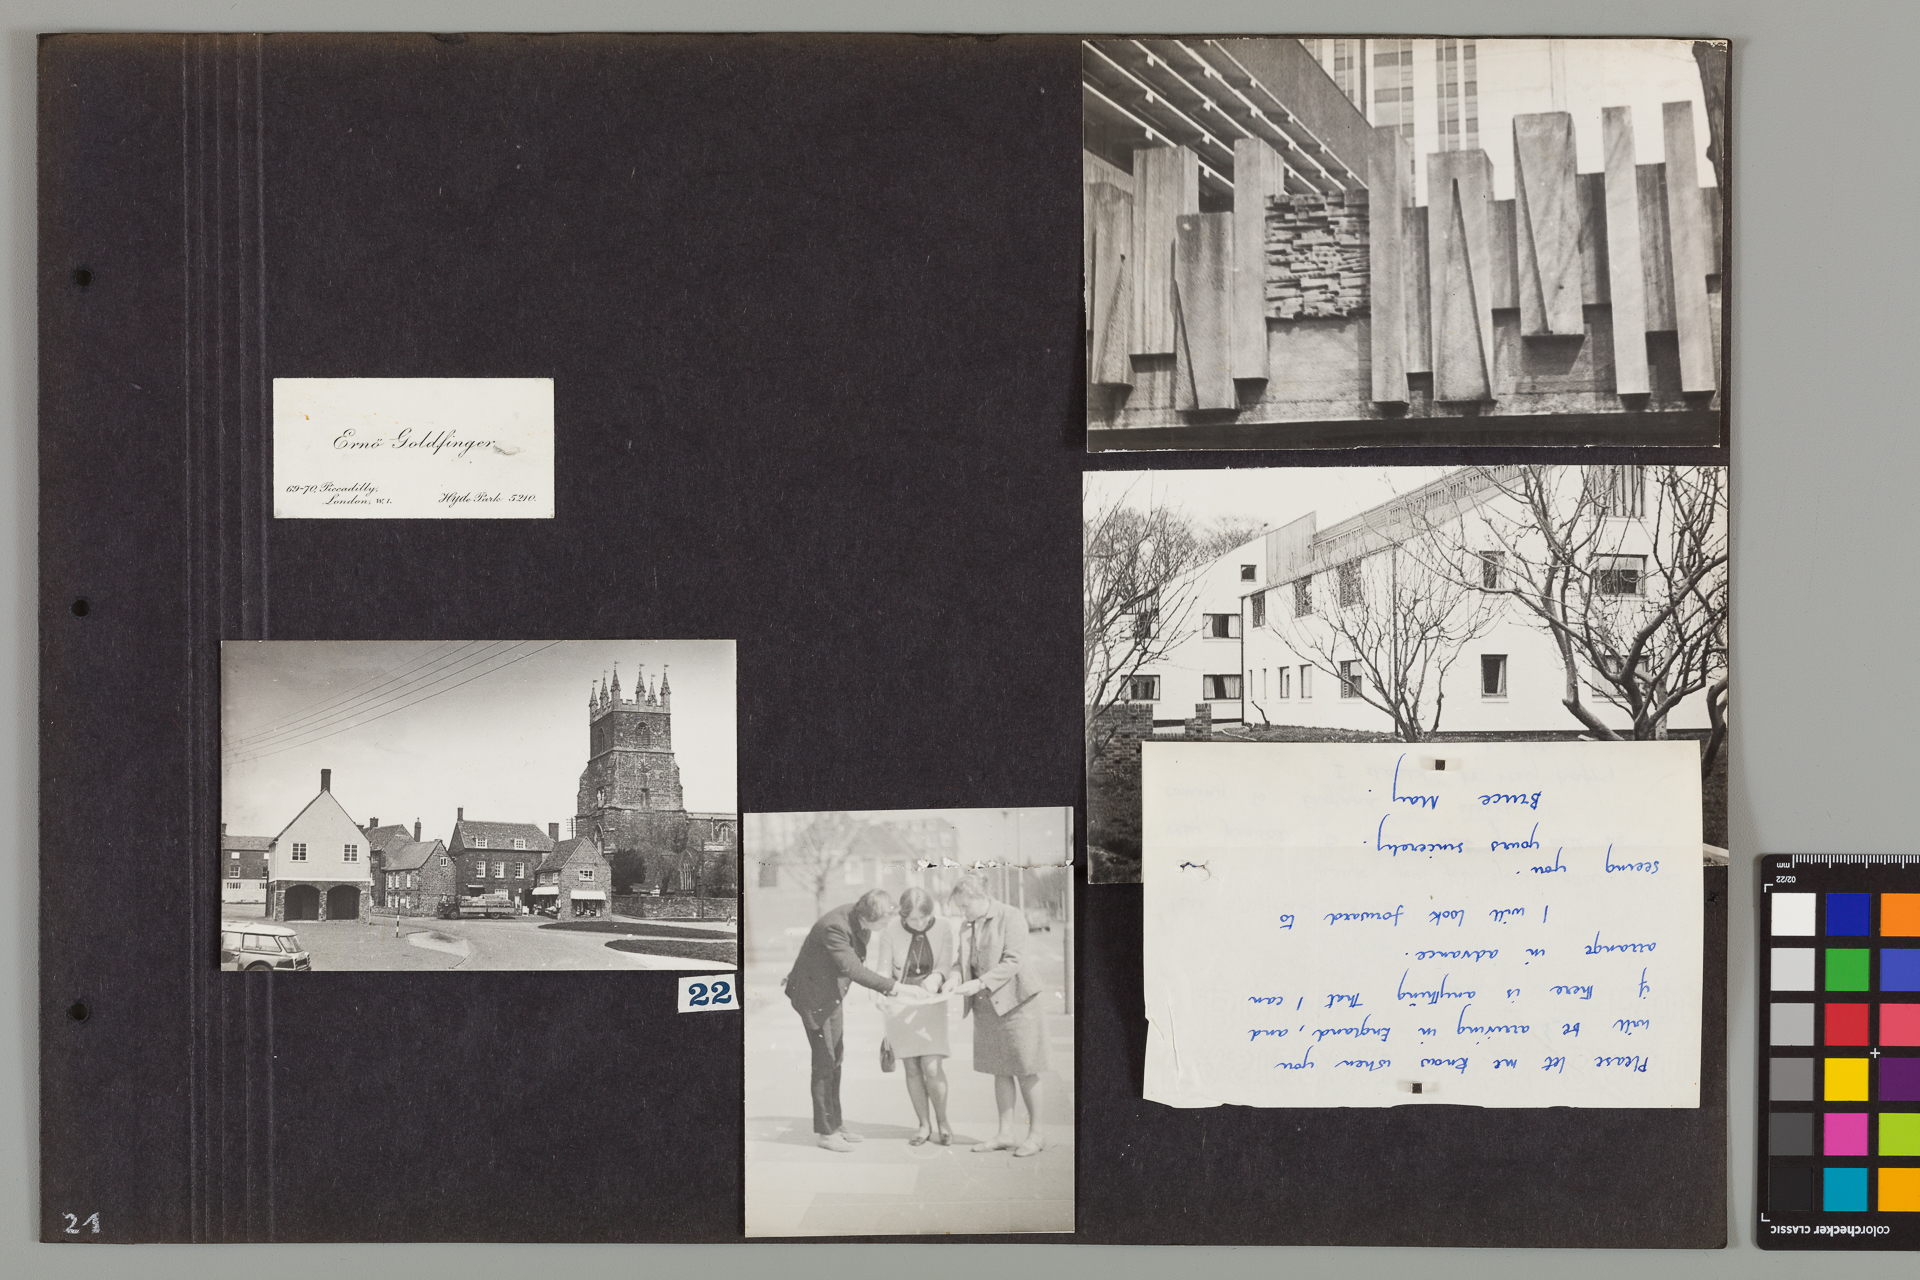 Ernö Goldfinger
69-70, Piccadilly,
London, W.1.
Hyde Park 5210.
22
Please let me know when you
will be arriving in England, and
if there is anything that I can
arrange in advance.
I will look forward to
seeing you.
yours sincerely.
Bruce May.
21
mm
02/22
colorchecker CLASSIC